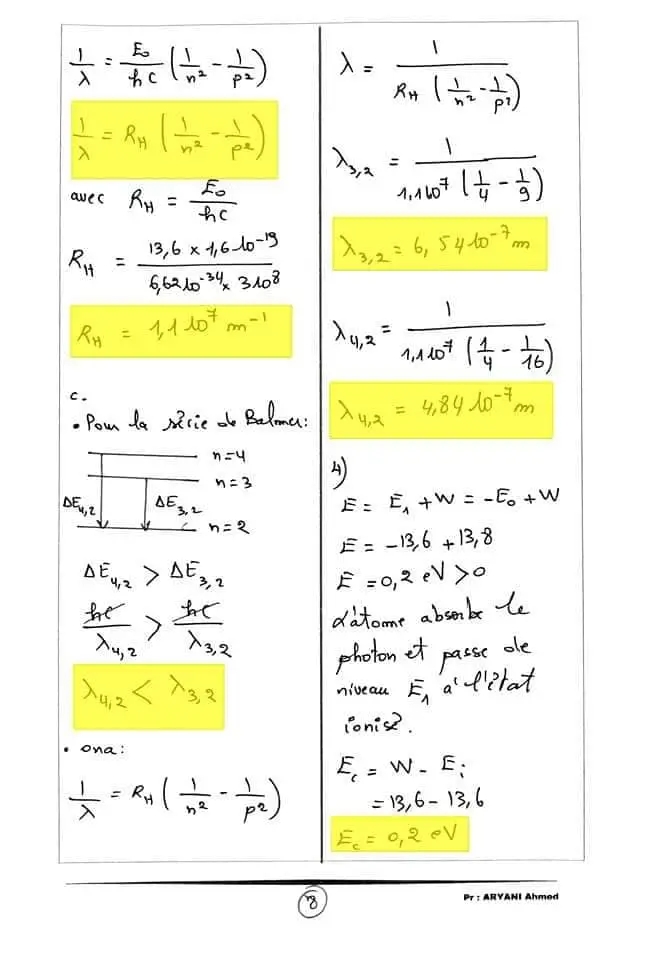 1/λ = E₀/hc (1/n² - 1/p²)
1/λ = R_H (1/n² - 1/p²)
avec R_H = E₀/hc
R_H = 13,6 × 1,6 10⁻¹⁹ / 6,62 10⁻³⁴ × 3 10⁸
R_H = 1,1 10⁷ m⁻¹
c.
• Pour la série de Balmer:
n=4
n=3
ΔE₄,₂ ΔE₃,₂
n=2
ΔE₄,₂ > ΔE₃,₂
hc/λ₄,₂ > hc/λ₃,₂
λ₄,₂ < λ₃,₂
• ona:
1/λ = R_H (1/n² - 1/p²)
λ = 1 / R_H (1/n² - 1/p²)
λ₃,₂ = 1 / 1,1 10⁷ (1/4 - 1/9)
λ₃,₂ = 6,54 10⁻⁷ m
λ₄,₂ = 1 / 1,1 10⁷ (1/4 - 1/16)
λ₄,₂ = 4,84 10⁻⁷ m
4)
E = E₁ + W = -E₀ + W
E = -13,6 + 13,8
E = 0,2 eV > 0
L'atome absorbe le
photon et passe de
niveau E₁ a' l'état
ionisé.
E_c = W - E_i
= 13,6 - 13,6
E_c = 0,2 eV
8
Pr : ARYANI Ahmed